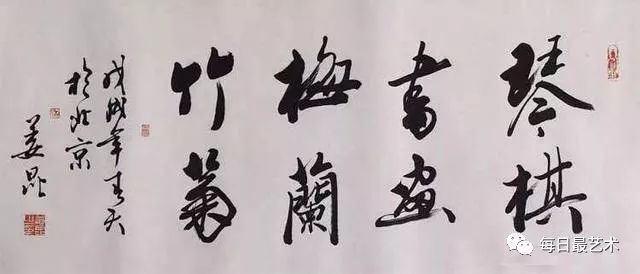 琴棋
書畫
梅蘭
竹菊
戊戌年春天
於北京
姜昆
每日最艺术